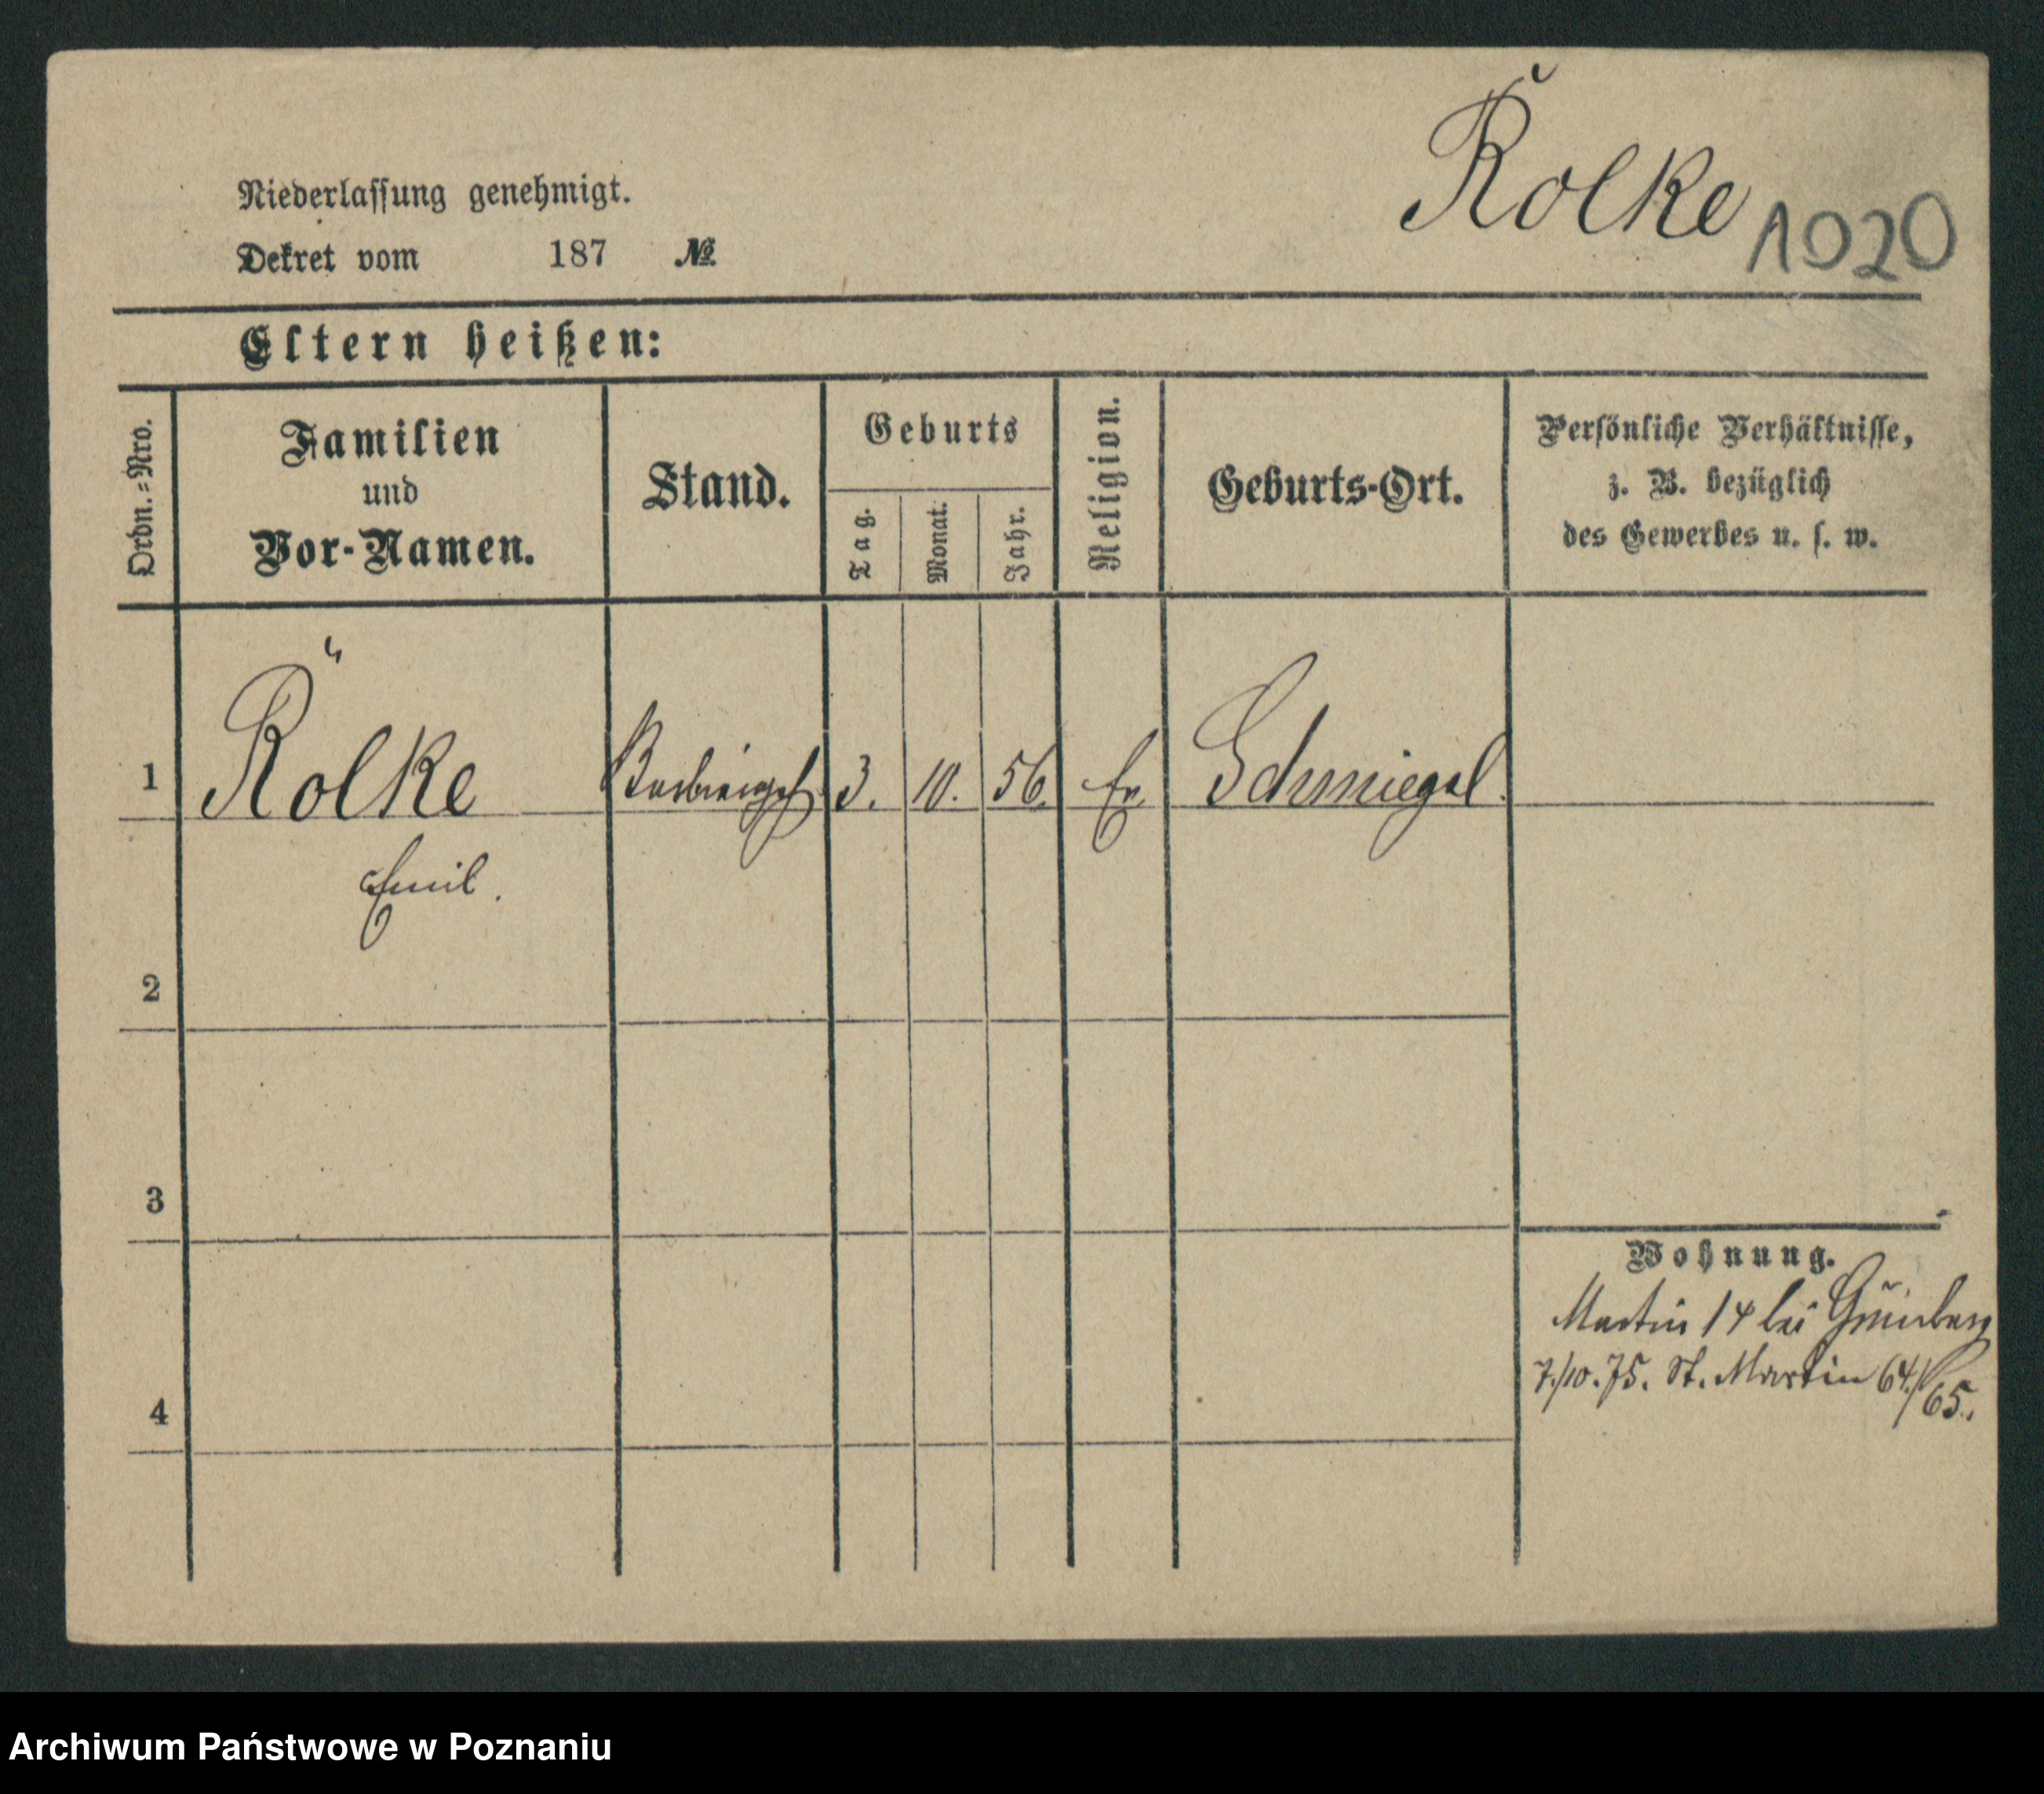 Rölke
1020
Niederlassung genehmigt.
Dekret vom 187 №
Eltern heißen:
Ordn.=Nro.
Familien
und
Vor-Namen.
Stand.
Geburts
Tag.
Monat.
Jahr.
Religion.
Geburts-Ort.
Persönliche Verhältnisse,
z. B. bezüglich
des Gewerbes u. s. w.
1 Rölke 3. 10. 56. Ev. Schmiegel.
Emil.
2
3
Wohnung.
Martin 14 bei
7./10. 75. St. Martin 64./65.
4
Archiwum Państwowe w Poznaniu